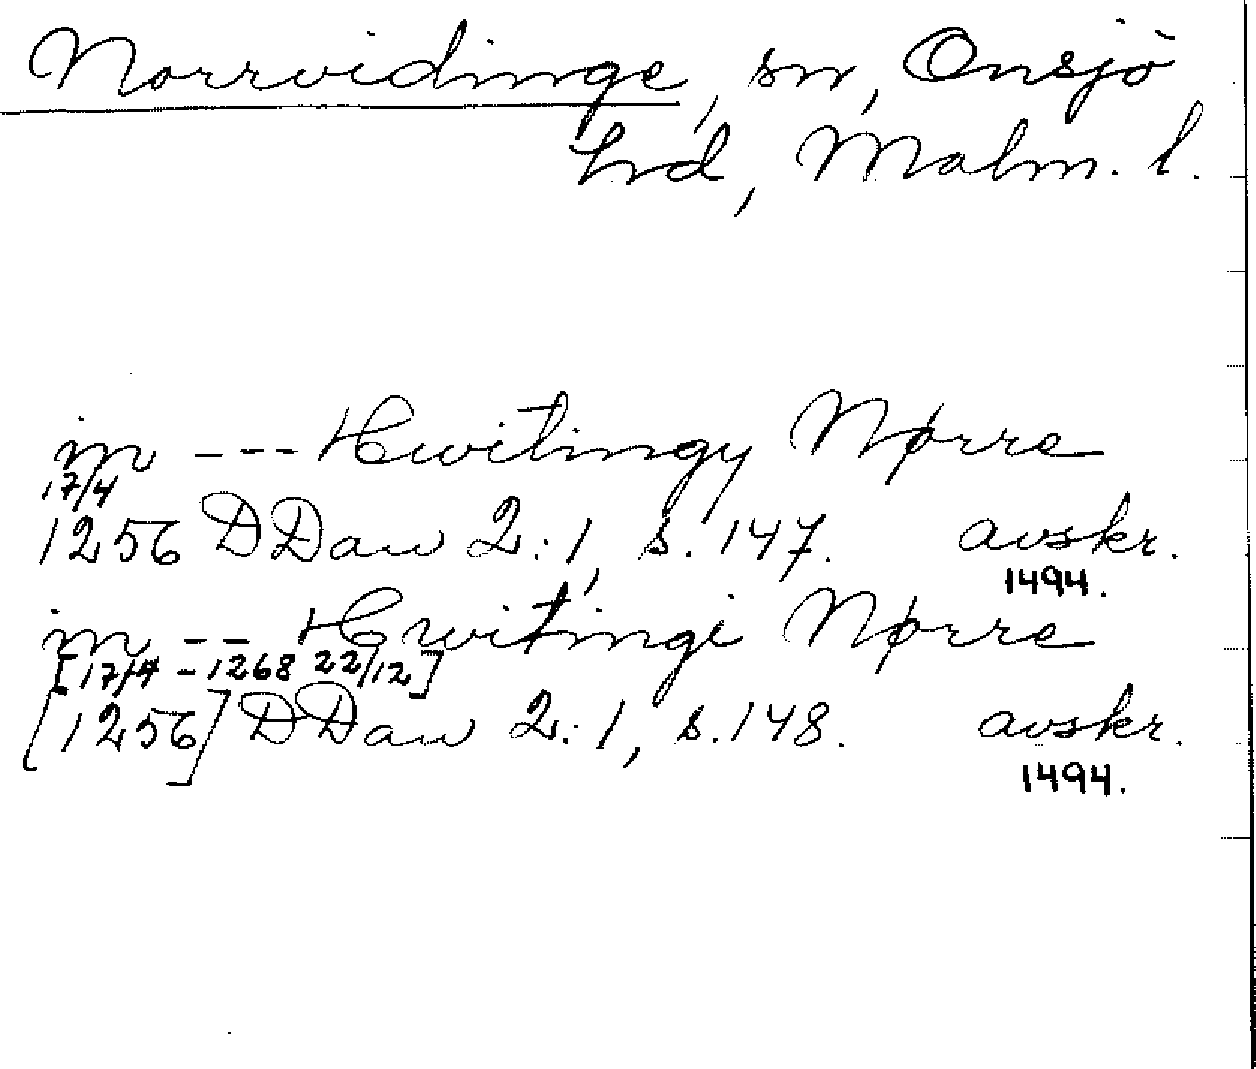 Norrvidinge, sn, Onsjö
hd, Malm. l.
in --- Hwitingy Nørre
17/4
1256 DDan 2:1, s. 147. avskr.
1494.
in --- Hwitingi Nørre
[17/4 - 1268 22/12]
[1256] DDan 2:1, s. 148. avskr.
1494.